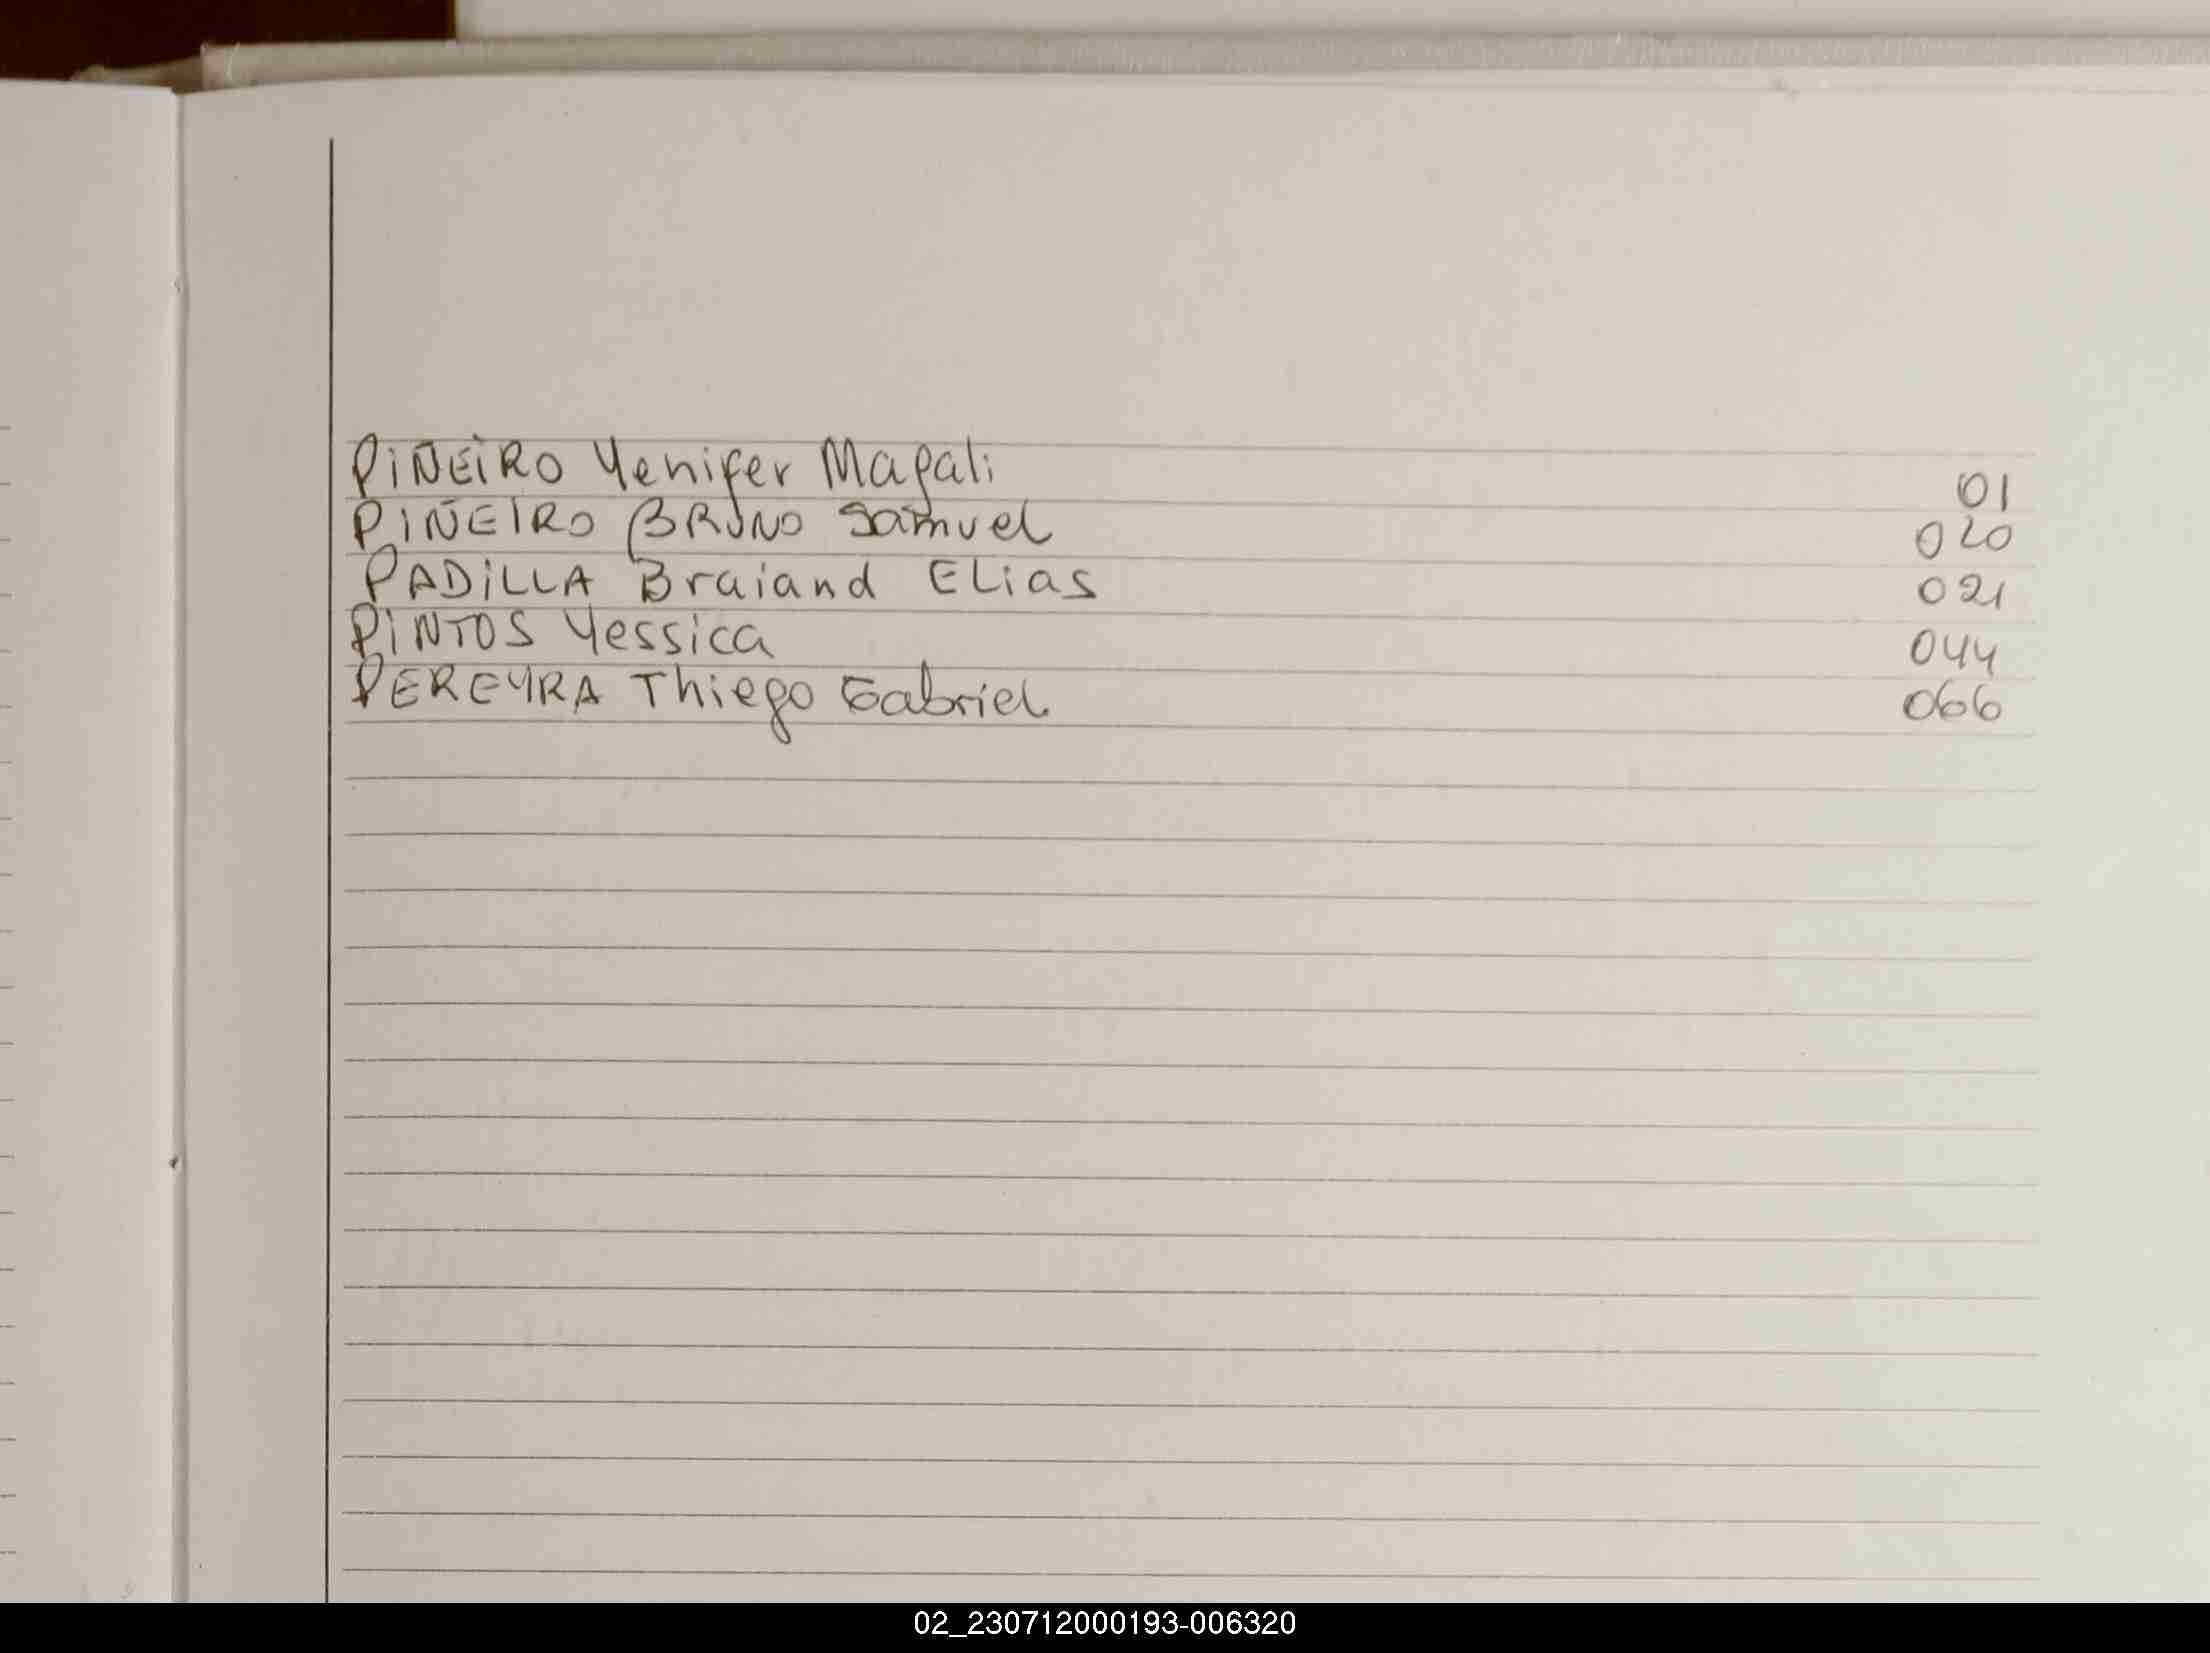 PIÑEIRO Yenifer Magali 01
PIÑEIRO BRUNO Samuel 020
PADILLA Braiand ELias 021
PINTOS Yessica 044
PEREYRA Thiego Gabriel 066
02_230712000193-006320